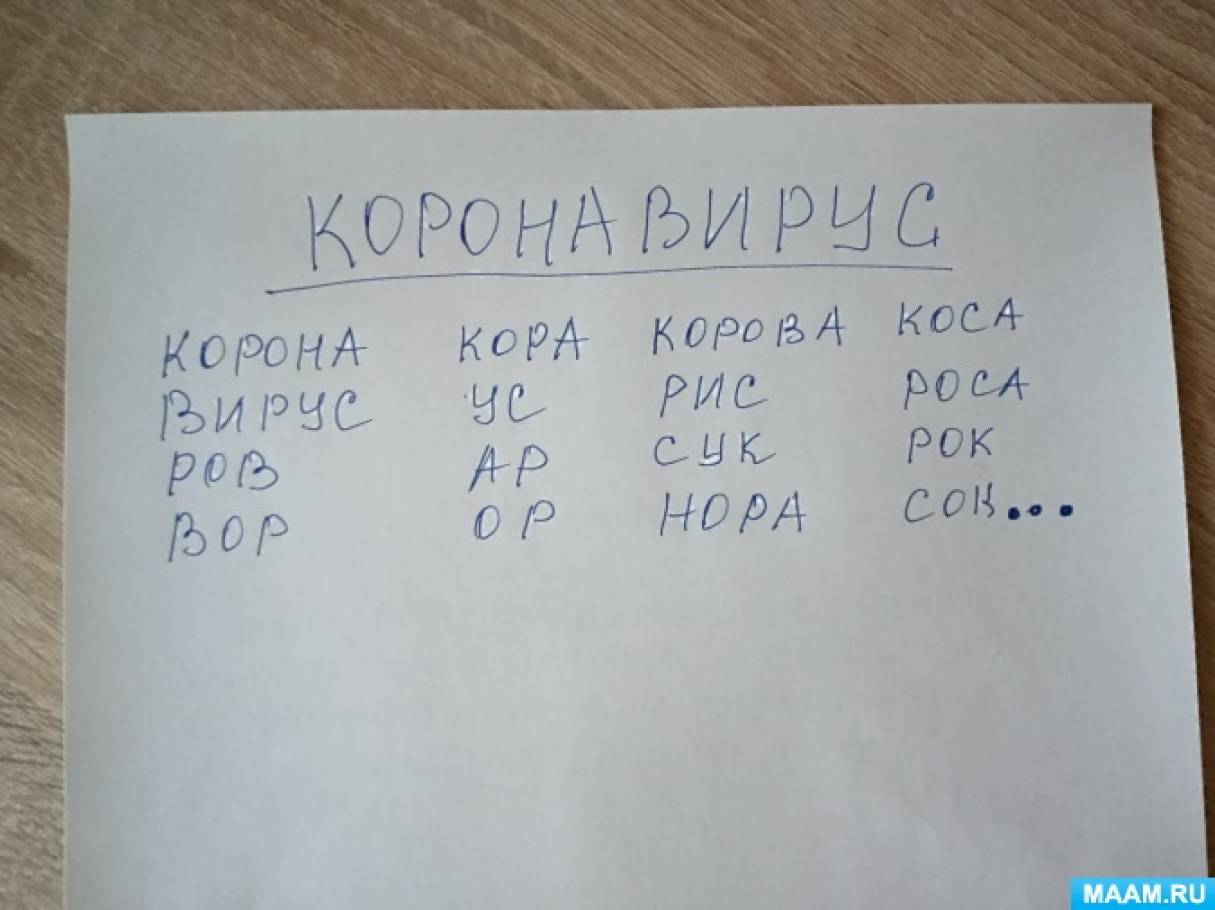 КОРОНАВИРУС
КОРОНА КОРА КОРОВА КОСА
ВИРУС УС РИС РОСА
РОВ АР СУК РОК
ВОР ОР НОРА СОК...
MAAM.RU